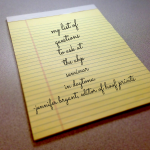 my list of
questions
to ask at
the chp
seminar
in daytona
jennifer bryant, editor of hoof prints